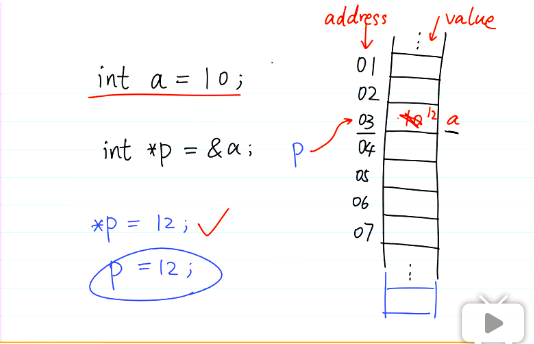 address value
int a = 10;
int *p = &a;
*p = 12;
p = 12;
01
02
p 03 12 a
04
05
06
07